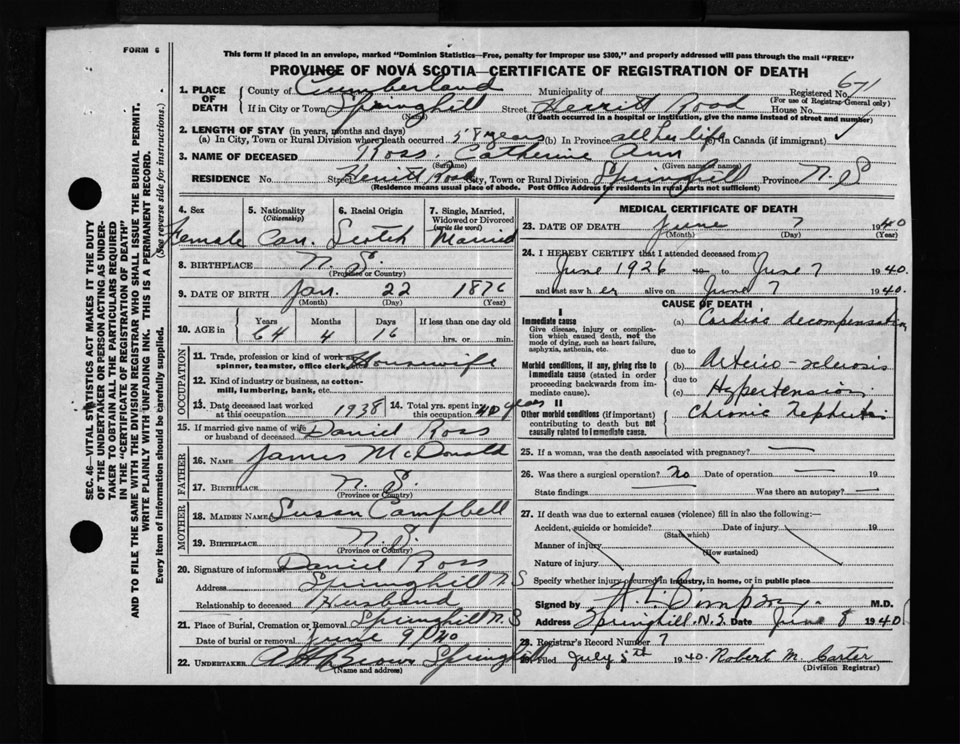 FORM 6
This form if placed in an envelope, marked "Dominion Statistics—Free, penalty for improper use $300," and properly addressed will pass through the mail "FREE"
PROVINCE OF NOVA SCOTIA—CERTIFICATE OF REGISTRATION OF DEATH
1. PLACE OF DEATH County of Cumberland Municipality of Registered No. 671
(For use of Registrar General only)
If in City or Town Springhill Street Herritt Road House No.
(Name) (If death occurred in a hospital or institution, give the name instead of street and number)
2. LENGTH OF STAY (in years, months and days)
(a) In City, Town or Rural Division where death occurred 58 years (b) In Province all her life (c) In Canada (if immigrant)
3. NAME OF DECEASED Ross, Catherine Ann
(Surname) (Given name or names)
RESIDENCE No. Street Herritt Road City, Town or Rural Division Springhill Province N.S
(Residence means usual place of abode. Post Office Address for residents in rural parts not sufficient)
4. Sex Female
5. Nationality (Citizenship) Can.
6. Racial Origin Scotch
7. Single, Married, Widowed or Divorced (write the word) Married
8. BIRTHPLACE N.S.
(Province or Country)
9. DATE OF BIRTH Jan. 22 1876
(Month) (Day) (Year)
10. AGE in Years Months Days If less than one day old
64 4 16 hrs. or min.
OCCUPATION
11. Trade, profession or kind of work as spinner, teamster, office clerk, Housewife
12. Kind of industry or business, as cotton-mill, lumbering, bank, etc.
13. Date deceased last worked at this occupation 1938 14. Total yrs. spent in this occupation 40 years
15. If married give name of wife or husband of deceased Daniel Ross
FATHER
16. NAME James McDonald
17. BIRTHPLACE N.S.
(Province or Country)
MOTHER
18. MAIDEN NAME Susan Campbell
19. BIRTHPLACE N.S.
(Province or Country)
20. Signature of informant Daniel Ross
Address Springhill N.S
Relationship to deceased Husband
21. Place of Burial, Cremation or Removal Springhill N.S
Date of burial or removal June 9/40
22. UNDERTAKER Springhill
(Name and address)
MEDICAL CERTIFICATE OF DEATH
23. DATE OF DEATH June 7 1940
(Month) (Day) (Year)
24. I HEREBY CERTIFY that I attended deceased from:
June 1926 to June 7 1940.
and last saw her alive on June 7 1940.
CAUSE OF DEATH
I
Immediate cause (a) Cardiac decompensation
Give disease, injury or complication which caused death, not the mode of dying, such as heart failure, asphyxia, asthenia, etc.
due to
Morbid conditions, if any, giving rise to immediate cause (stated in order proceeding backwards from immediate cause). (b) Arterio-sclerosis
due to
(c) Hypertension
II
Other morbid conditions (if important) contributing to death but not causally related to immediate cause. Chronic Nephritis
25. If a woman, was the death associated with pregnancy? —
26. Was there a surgical operation? no Date of operation — 19
State findings — Was there an autopsy? —
27. If death was due to external causes (violence) fill in also the following:—
Accident, suicide or homicide? Date of injury 19
(State which)
Manner of injury
(How sustained)
Nature of injury
Specify whether injury occurred in industry, in home, or in public place
Signed by M.D.
Address Springhill. N.S. Date June 8 1940
28. Registrar's Record Number 7
29. Filed July 5th 1940 Robert M. Carter
(Division Registrar)
SEC. 46—VITAL STATISTICS ACT MAKES IT THE DUTY
OF THE UNDERTAKER OR PERSON ACTING AS UNDER-
TAKER TO OBTAIN ALL THE PARTICULARS REQUIRED
IN THE "CERTIFICATE OF REGISTRATION OF DEATH"
AND TO FILE THE SAME WITH THE DIVISION REGISTRAR WHO SHALL ISSUE THE BURIAL PERMIT.
WRITE PLAINLY WITH UNFADING INK. THIS IS A PERMANENT RECORD.
Every item of information should be carefully supplied. (See reverse side for instructions.)